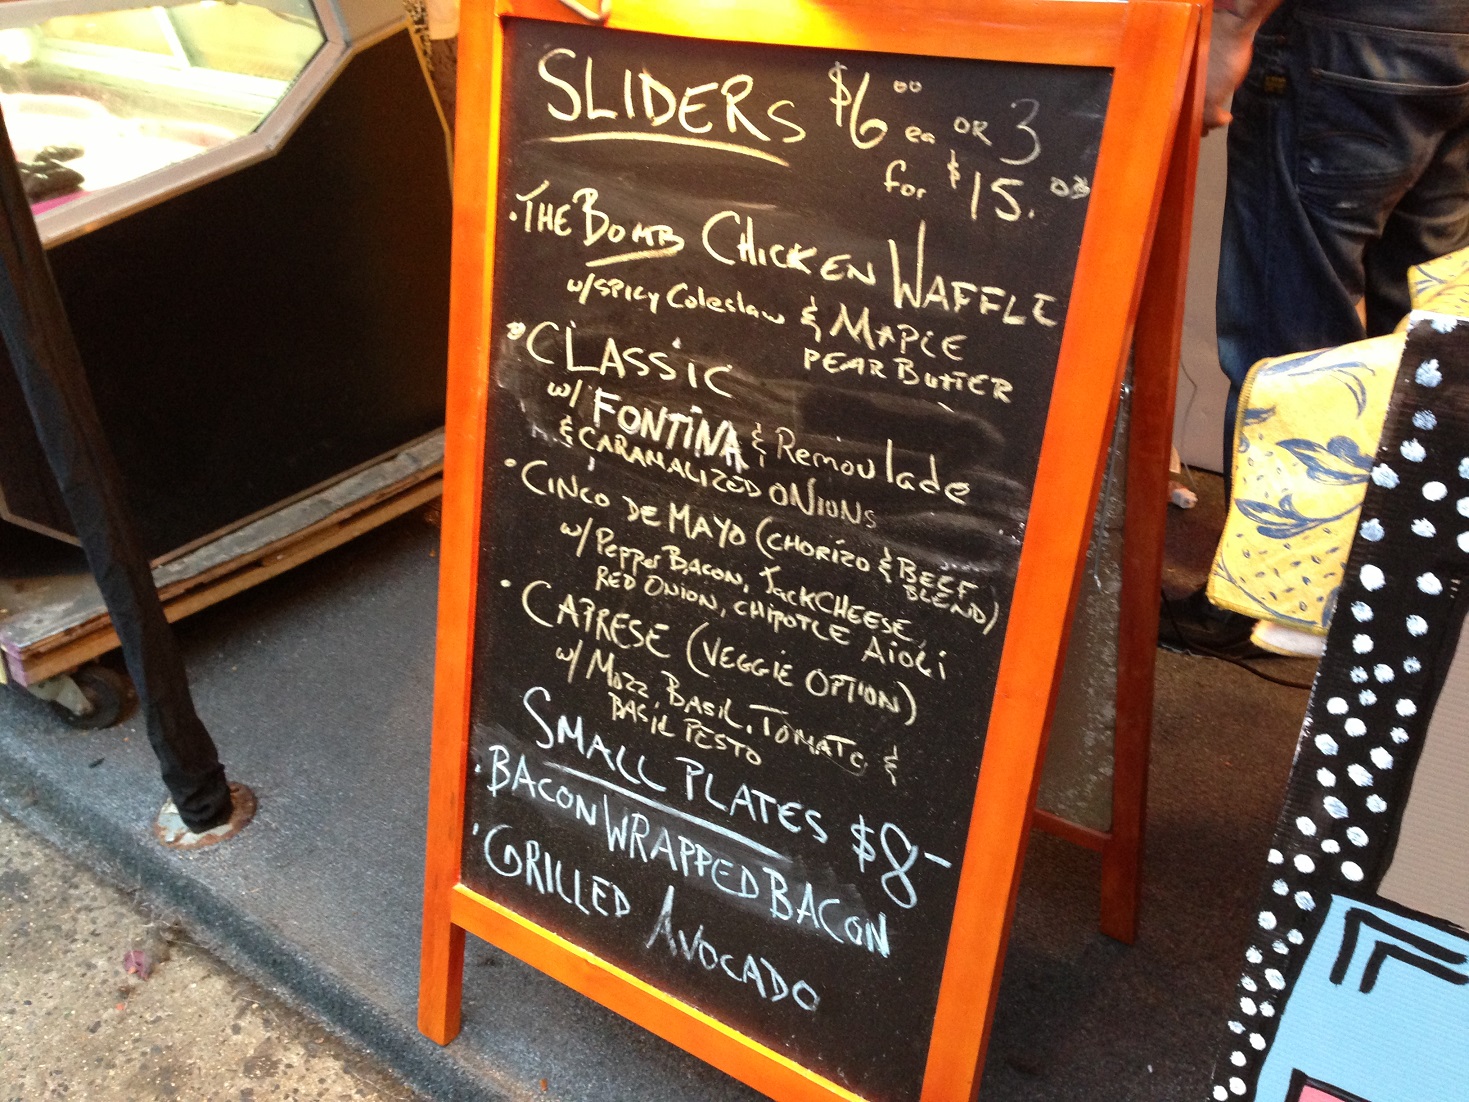 SLIDERS $6.00 ea OR 3
for $15.00
· THE BOMB CHICKEN WAFFLE
w/ SPICY Coleslaw & MAPLE
PEAR BUTTER
· CLASSIC
w/ FONTINA & Remoulade
& CARAMALIZED ONIONS
· CINCO DE MAYO (CHORIZO & BEEF
BLEND)
w/ Pepper BACON, JACK CHEESE,
RED ONION, CHIPOTLE AIOLI
· CAPRESE (VEGGIE OPTION)
w/ MOZZ BASIL, TOMATO &
BASIL PESTO
SMALL PLATES $8-
· BACON WRAPPED BACON
· GRILLED AVOCADO